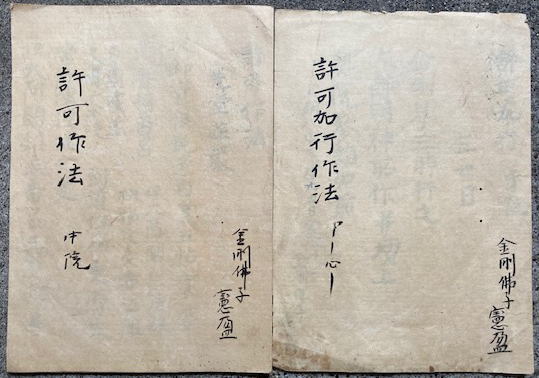 許可加行作法
金剛佛子
憲盈
許可作法 中院
金剛佛子
憲盈